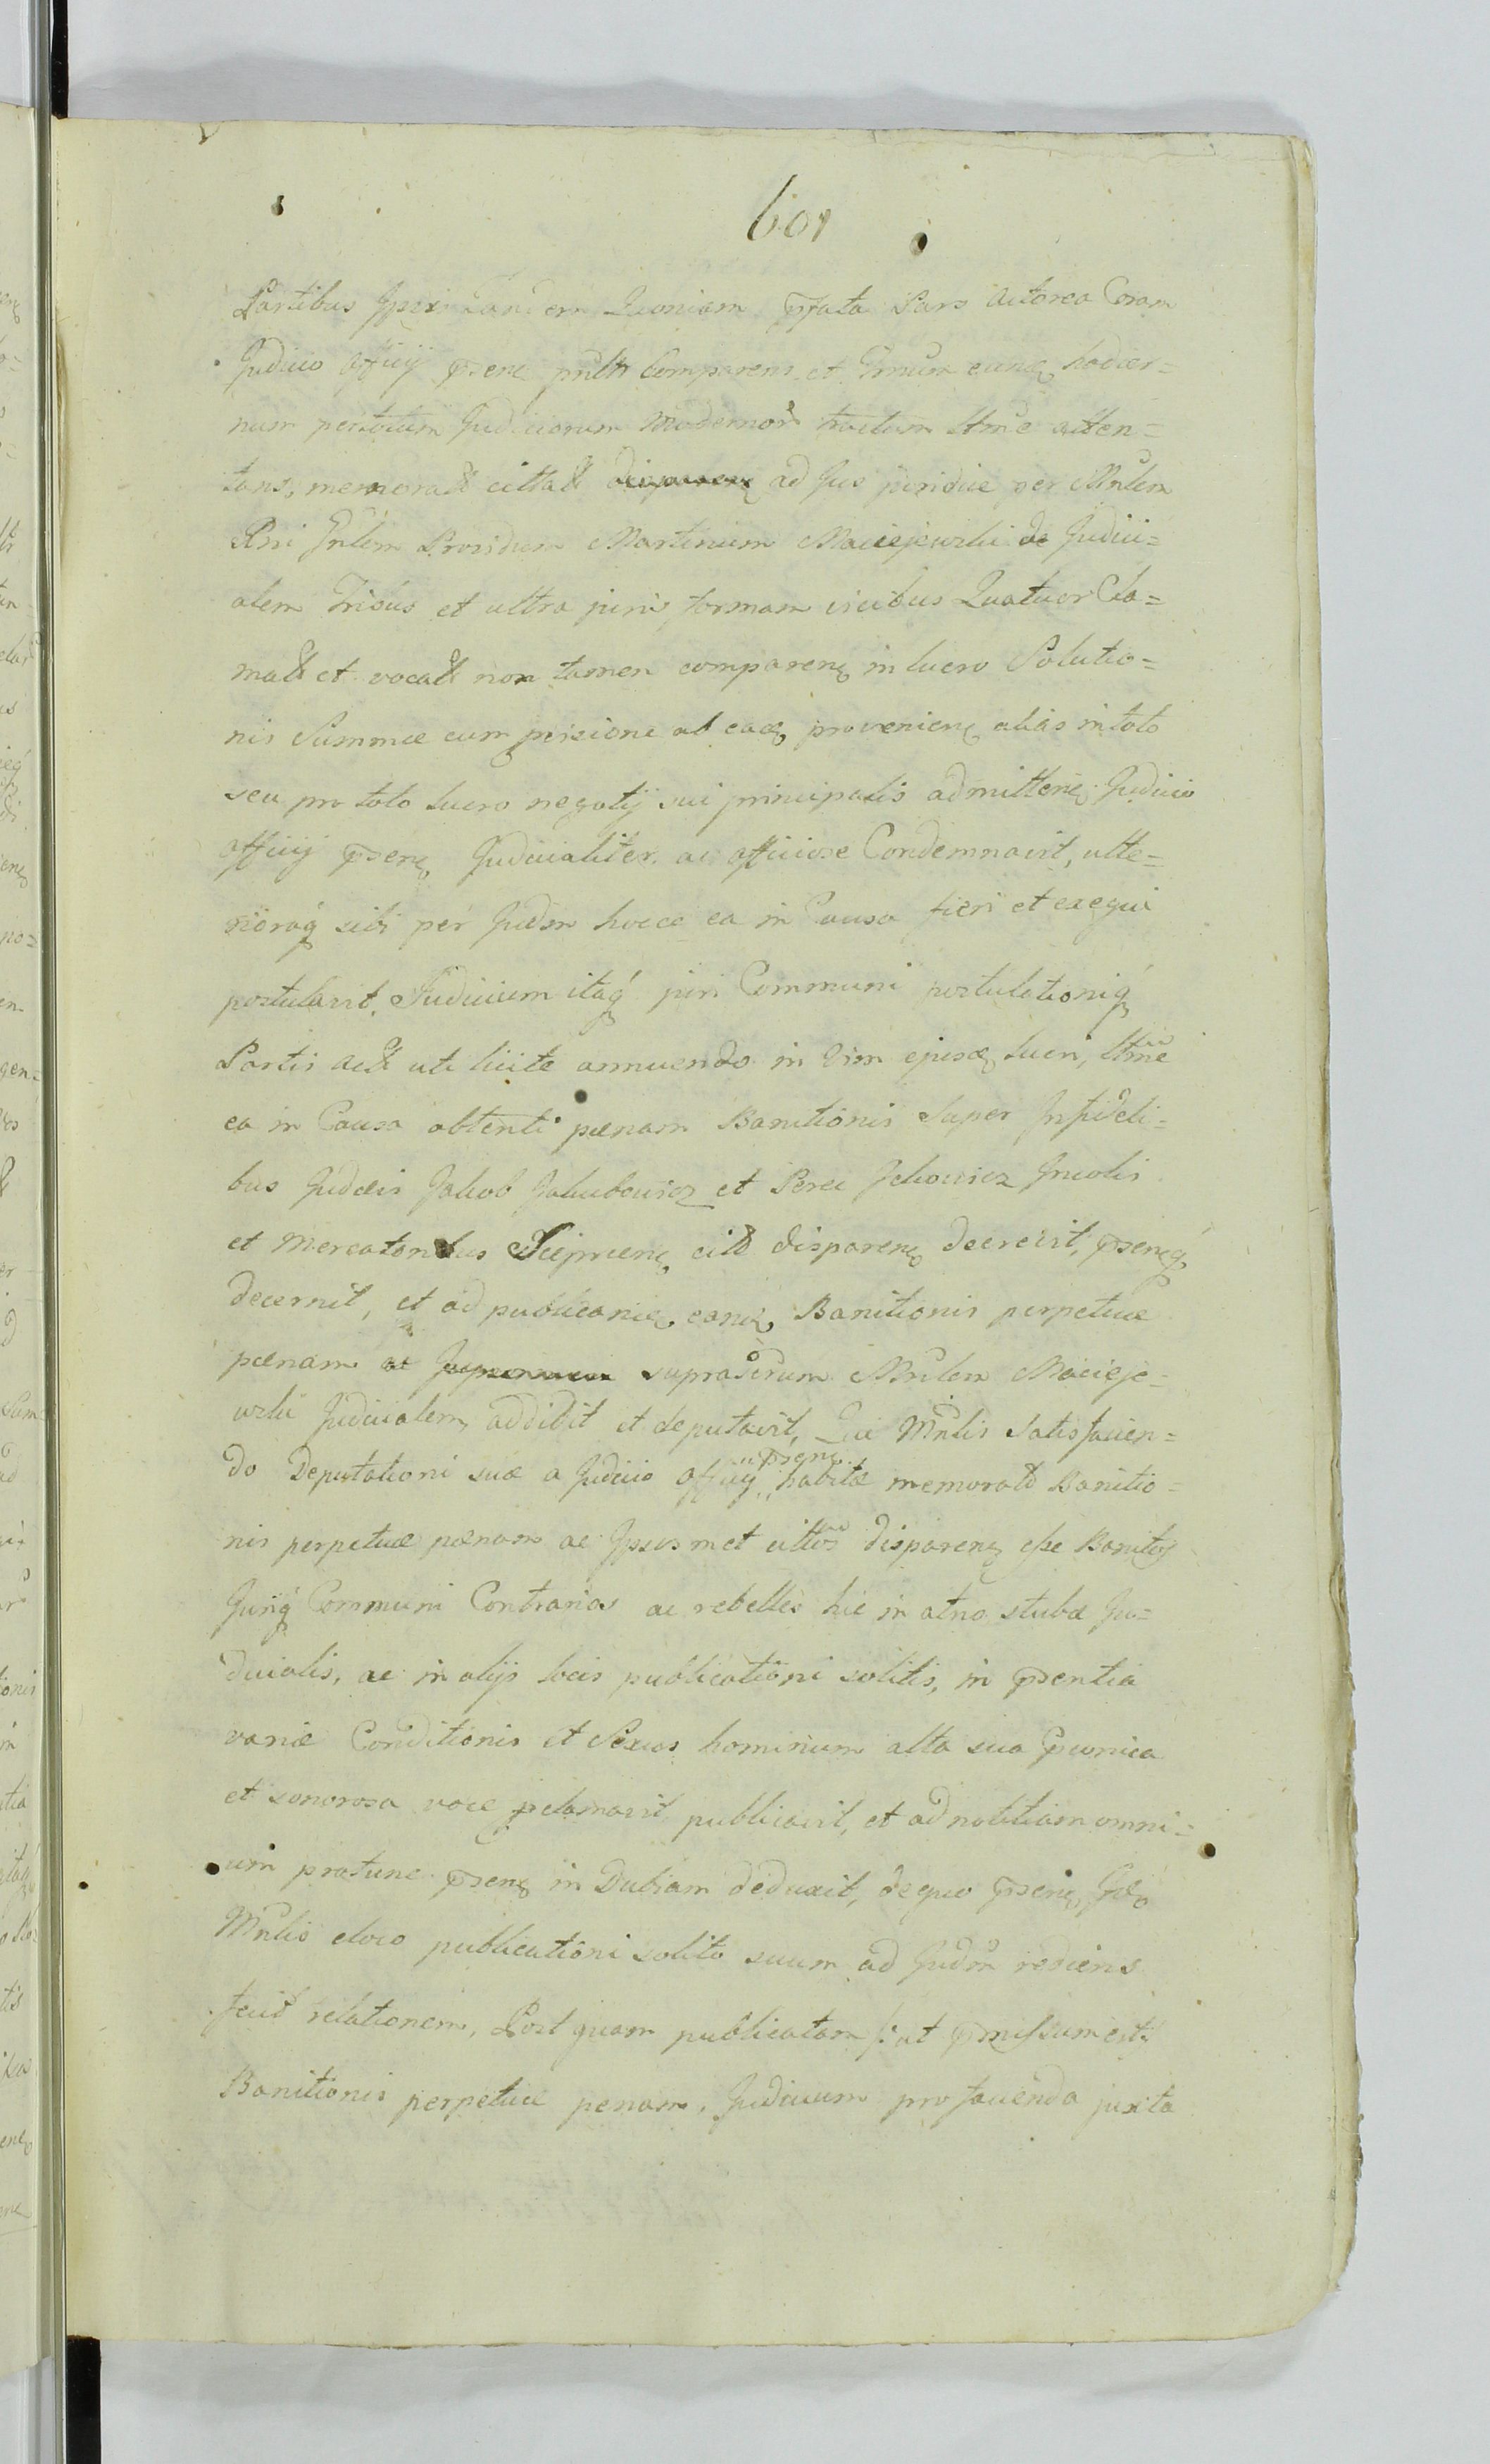 601
Partibus Quoniam pfata Pars Actorea Coram
Judicio Officij psenᶎ comparens et Tmnum eundᶎ hodier=
num per totum Judiciorum modernor tractum ltme atten=
tans, memorat cittat ad Jus juridice per Mnlem
Rni Gnlem Providum Martinum Maciejewski de Judici=
alem Trinus et ultra juris formam vicibus Quatuor Cla=
mat et vocat non tamen comparenᶎ in lucro Solutio=
nis Summæ cum provisione ab eadᶎ provenienᶎ alias in toto
seu pro toto lucro negotij sui principalis admittenᶎ Judicio
officij psenᶎ Judicialiter ac officiose Condemnavit, ulte=
rioraqꝫ sibi per Judm hocce ea in Causa fieri et exequi
postulavit. Judicium itaqꝫ juri Communi postulationiqꝫ
Partis Act uti licite annuendo in Vim ejusdᶎ lucri, ltme
ea in Causa obtenti pænam Banitionis super Infideli=
bus Judæis Jakob Jakubowicz et Perec Ickowicz Incolis
et Mercatoribus citt disparenᶎ decrevit, psenᶎqꝫ
decernit, et ad publicanᶎ eandᶎ Banitionis perpetuæ
pænam ac suprascrum Mnlem Macieje=
wski Judicialem addidit et deputavit, Qui Mnlis Satisfacien=
do Deputationi suæ a Judicio Officij psenᶎ habitæ memorat Banitio=
nis perpetuæ pænam ac Ipsosmet cittos disparenᶎ eße Banitos
Juriqꝫ Communi Contrarios ac rebelles hic in atrio stubæ Ju=
dicialis, ac in alijs locis publicationi solitis, in psentia
variæ Conditionis et Sexus hominum alta sua
et sonorosa voce pclamavit publicavit, et ad notitiam omni=
um pro tunc psenᶎ in Dubiam deduxit, de quo psenᶎ
Mnlis eloco publicationi solito suum ad Judm rediens
fecit relationem, Post quam publicatam /: ut pmissum est :/
Banitionis perpetuæ penam, Judicium pro facienda juxta